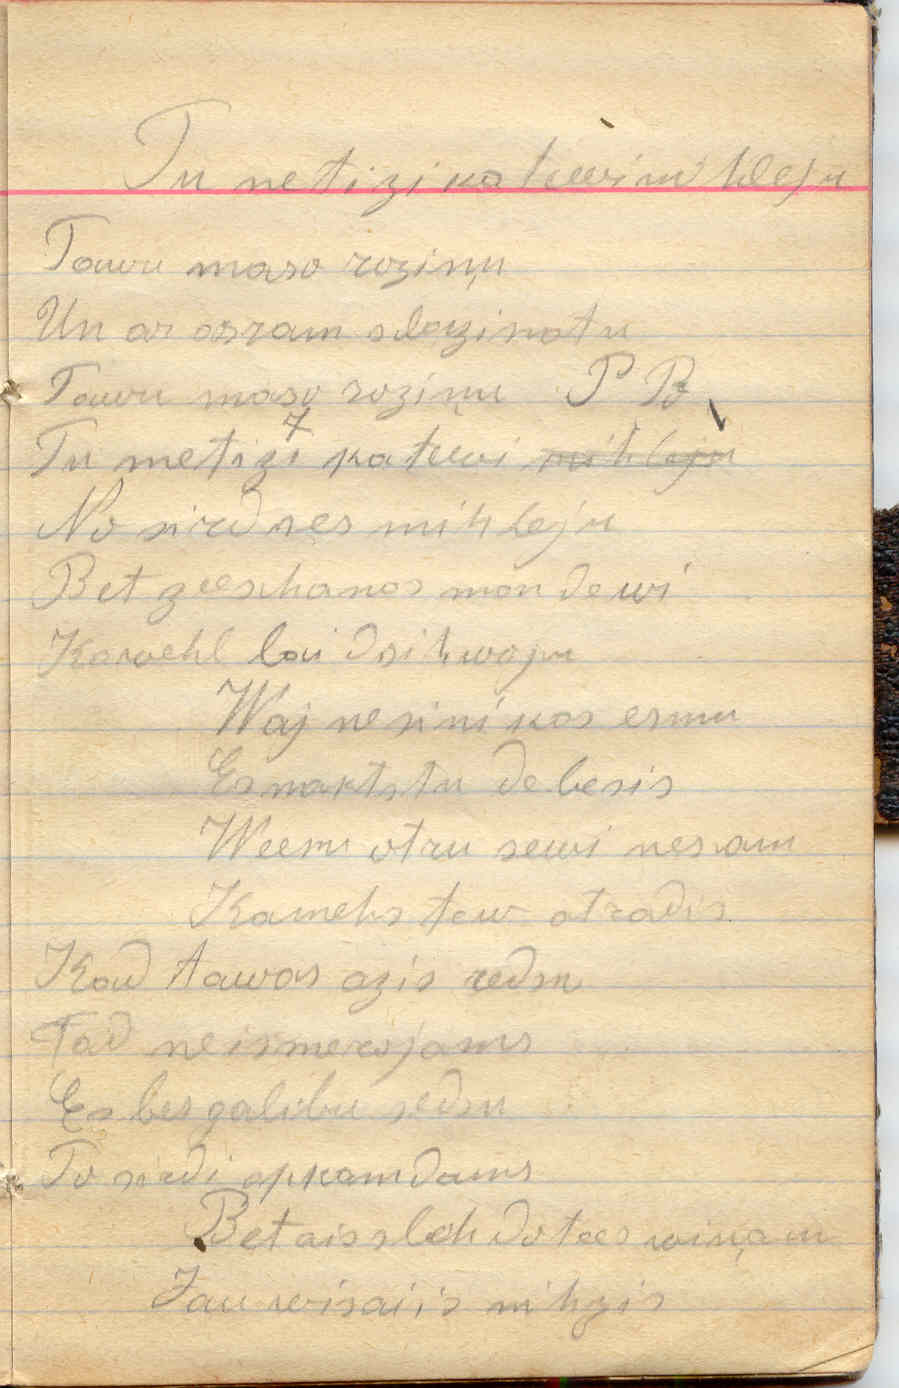 Tu netizi ka tewi mihleju
Tawu maso roziņu
Un ar asram slazinatu
Tawu maso roziņu P B
7
Tu netizi ka tewi mihleju
No sirdses mihleju
Bet zeeschanas man dewi
Karoehl lai dsihwoju
Waj nesini kas esmu
Es nakts tu debesis
Weenu otru sewi nesam
Kamehs tew atradis
Kad tawas azis redsu
Tad neismerojams
Es besgalibu sedsu
To sirdi apkamdams
Bet aisslehdotees wiņam
Jau wisai is mihzis